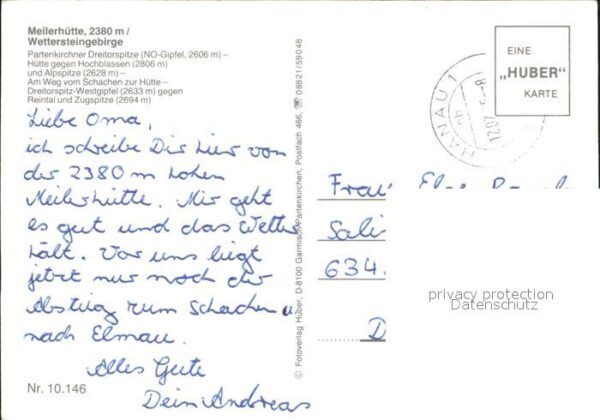 Meilerhütte, 2380 m /
Wettersteingebirge
Partenkirchner Dreitorspitze (NO-Gipfel, 2606 m) –
Hütte gegen Hochblassen (2806 m)
und Alpspitze (2628 m) –
Am Weg vom Schachen zur Hütte –
Dreitorspitz-Westgipfel (2633 m) gegen
Reintal und Zugspitze (2694 m)
Liebe Oma,
ich schreibe Dir hier von
der 2380 m hohen
Meilerhütte. Mir geht
es gut und das Wetter
hält. Vor uns liegt
jetzt nur noch der
Abstieg zum Schachen u.
nach Elmau.
Alles Gute
Dein Andreas
Nr. 10.146
© Fotoverlag Huber, D-8100 Garmisch-Partenkirchen, Postfach 466, ☎ 08821/59048
HANAU 1
EINE
„HUBER"
KARTE
Frau
Sali
634.
D
privacy protection
Datenschutz